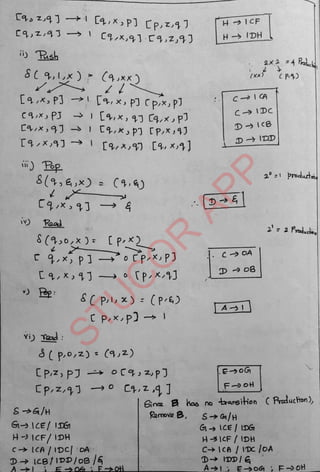 [q,z,q] → 1 [q,x,p] [p,z,q]
[q,z,q] → 1 [q,x,q] [q,z,q]
H → 1CF
H → 1DH
ii) Push
δ(q,1,x) = (q,xx)
∴ 2x2 = 4 Production
(xx) (p,q)
[q,x,p] → 1 [q,x,p] [p,x,p]
[q,x,p] → 1 [q,x,q] [q,x,p]
[q,x,q] → 1 [q,x,p] [p,x,q]
[q,x,q] → 1 [q,x,q] [q,x,q]
∴
C → 1CA
C → 1DC
D → 1CB
D → 1DD
iii) Pop
2⁰=1 production
δ(q,ε,x) = (q,ε)
[q,x,q] → ε
∴ D → ε
iv) Read
2¹ = 2 Production
δ(q,0,x) = (p,x)
[q,x,p] → 0 [p,x,p]
[q,x,q] → 0 [p,x,q]
∴
C → 0A
D → 0B
v) Pop:
δ(p,1,x) = (p,ε)
[p,x,p] → 1
A → 1
vi) Read:
δ(p,0,z) = (q,z)
[p,z,p] → 0 [q,z,p]
[p,z,q] → 0 [q,z,q]
E → 0G
F → 0H
Since B has no transition (Production),
Remove B.
S → G/H
G → 1CE / 1DG
H → 1CF / 1DH
C → 1CA / 1DC / 0A
D → 1CB / 1DD / 0B / ε
A → 1 ; E → 0G ; F → 0H
S → G/H
G → 1CE / 1DG
H → 1CF / 1DH
C → 1CA / 1DC / 0A
D → 1DD / ε
A → 1 ; E → 0G ; F → 0H
STUCOR APP